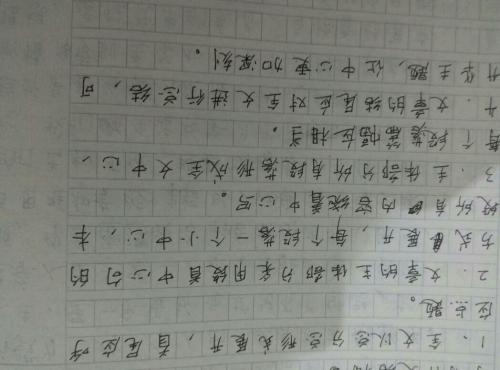 1. 全文以总分总形式展开，首尾应呼
应点题。
2. 文章的主体部分采用段首中心句的
方式展开，每个段落一个小中心，本
段所有内容绕着中心写。
3. 主体部分所有段落形成全文中心，
每个段落篇幅应相当。
4. 文章的结尾应对全文进行总结，可
升华主题，让中心更加深刻。